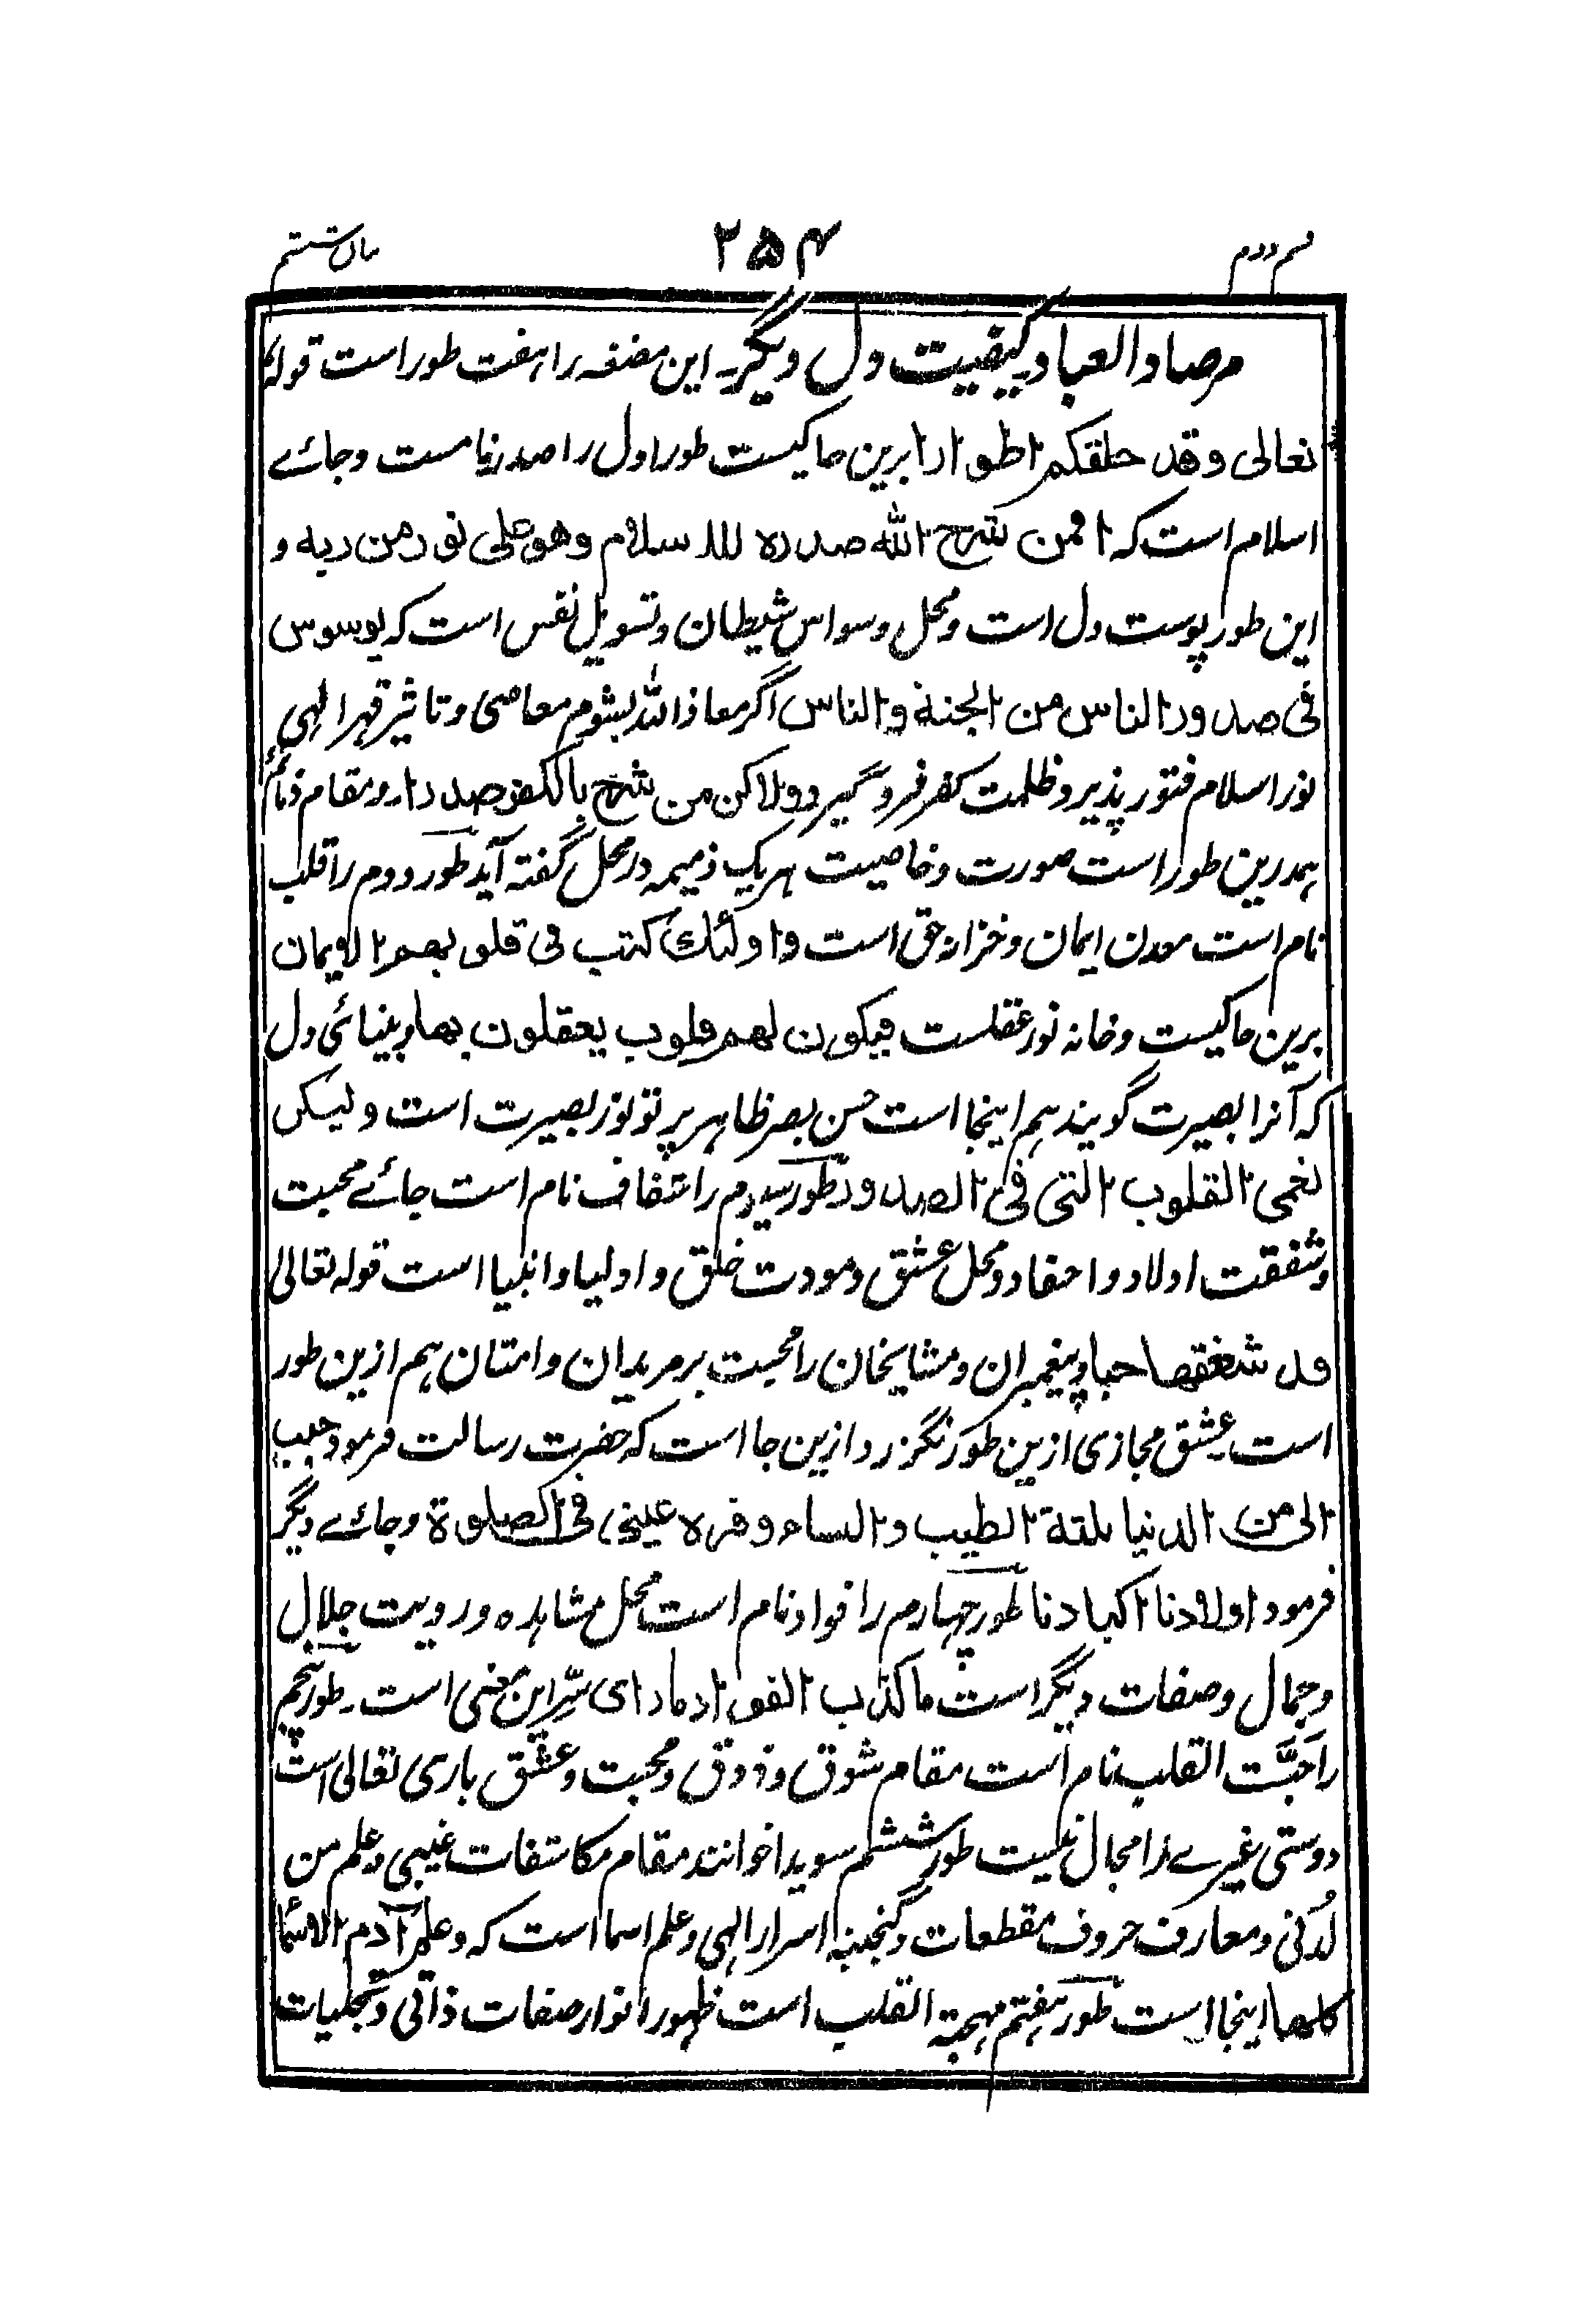 قسم دوم ۲۵۴ بیان ششم
مرصاد العباد کیفیت دل دیگر۔ این مضغه را هفت طور است قوله
تعالی وقد خلقکم اطوارا برین حاکیست طور اول را صدر نامست و جائے
اسلام است که افمن شرح الله صدره للاسلام وهو علی نور من ربه و
این طور پوست دل است و محل وسواس شیطان و تسویل نفس است که یوسوس
فی صدور الناس من الجنة والناس اگر معاذ الله بشوم معاصی و تاثیر قهر الهی
نور اسلام فتور پذیر و ظلمت کفر فرو گیرد ولاکن من شرح بالکفر صدرا و مقام ذمائم
همدرین طور است صورت و خاصیت هر یک ذمیمه در محل گفته آید طور دوم را قلب
نام است معدن ایمان و خزانه حق است و اولئک کتب فی قلوبهم الایمان
برین حاکیست و خانه نور عقلست فیکون لهم قلوب یعقلون بها و بینائی دل
که آنرا بصیرت گویند هم اینجا است حسن بصر ظاهر پرتو نور بصیرت است ولیکن
تعمی القلوب التی فی الصدور طور سیوم را شغاف نام است جائے محبت
و شفقت اولاد و احفاد و محل عشق و مودت خلق و اولیا و انبیا است قوله تعالی
قد شغفها حبا و پیغمبران و مشایخان را محبت بر مریدان و امتان هم ازین طور
است عشق مجازی ازین طور نگزرد ازین جا است که حضرت رسالت فرمود حبب
الی من الدنیا ثلثة الطیب والنساء وقره عینی فی الصلوة و جائے دیگر
فرمود اولادنا اکبادنا طور چهارم را فواد نام است محل مشاهده و رویت جلال
و جمال و صفات دیگر است ما کذب الفواد ما رای سر این معنی است۔ طور پنجم
را حَبَّت القلب نام است مقام شوق و ذوق و محبت و عشق باری تعالی است
دوستی غیرے را مجال نیست طور ششم سویدا خوانند مقام مکاشفات غیبی و علم من
لدنی و معارف حروف مقطعات و گنجینه اسرار الهی و علم اسما است که وعلم آدم الاسماء
کلها اینجا است طور هفتم مهجة القلب است ظهور انوار صفات ذاتی و تجلیات